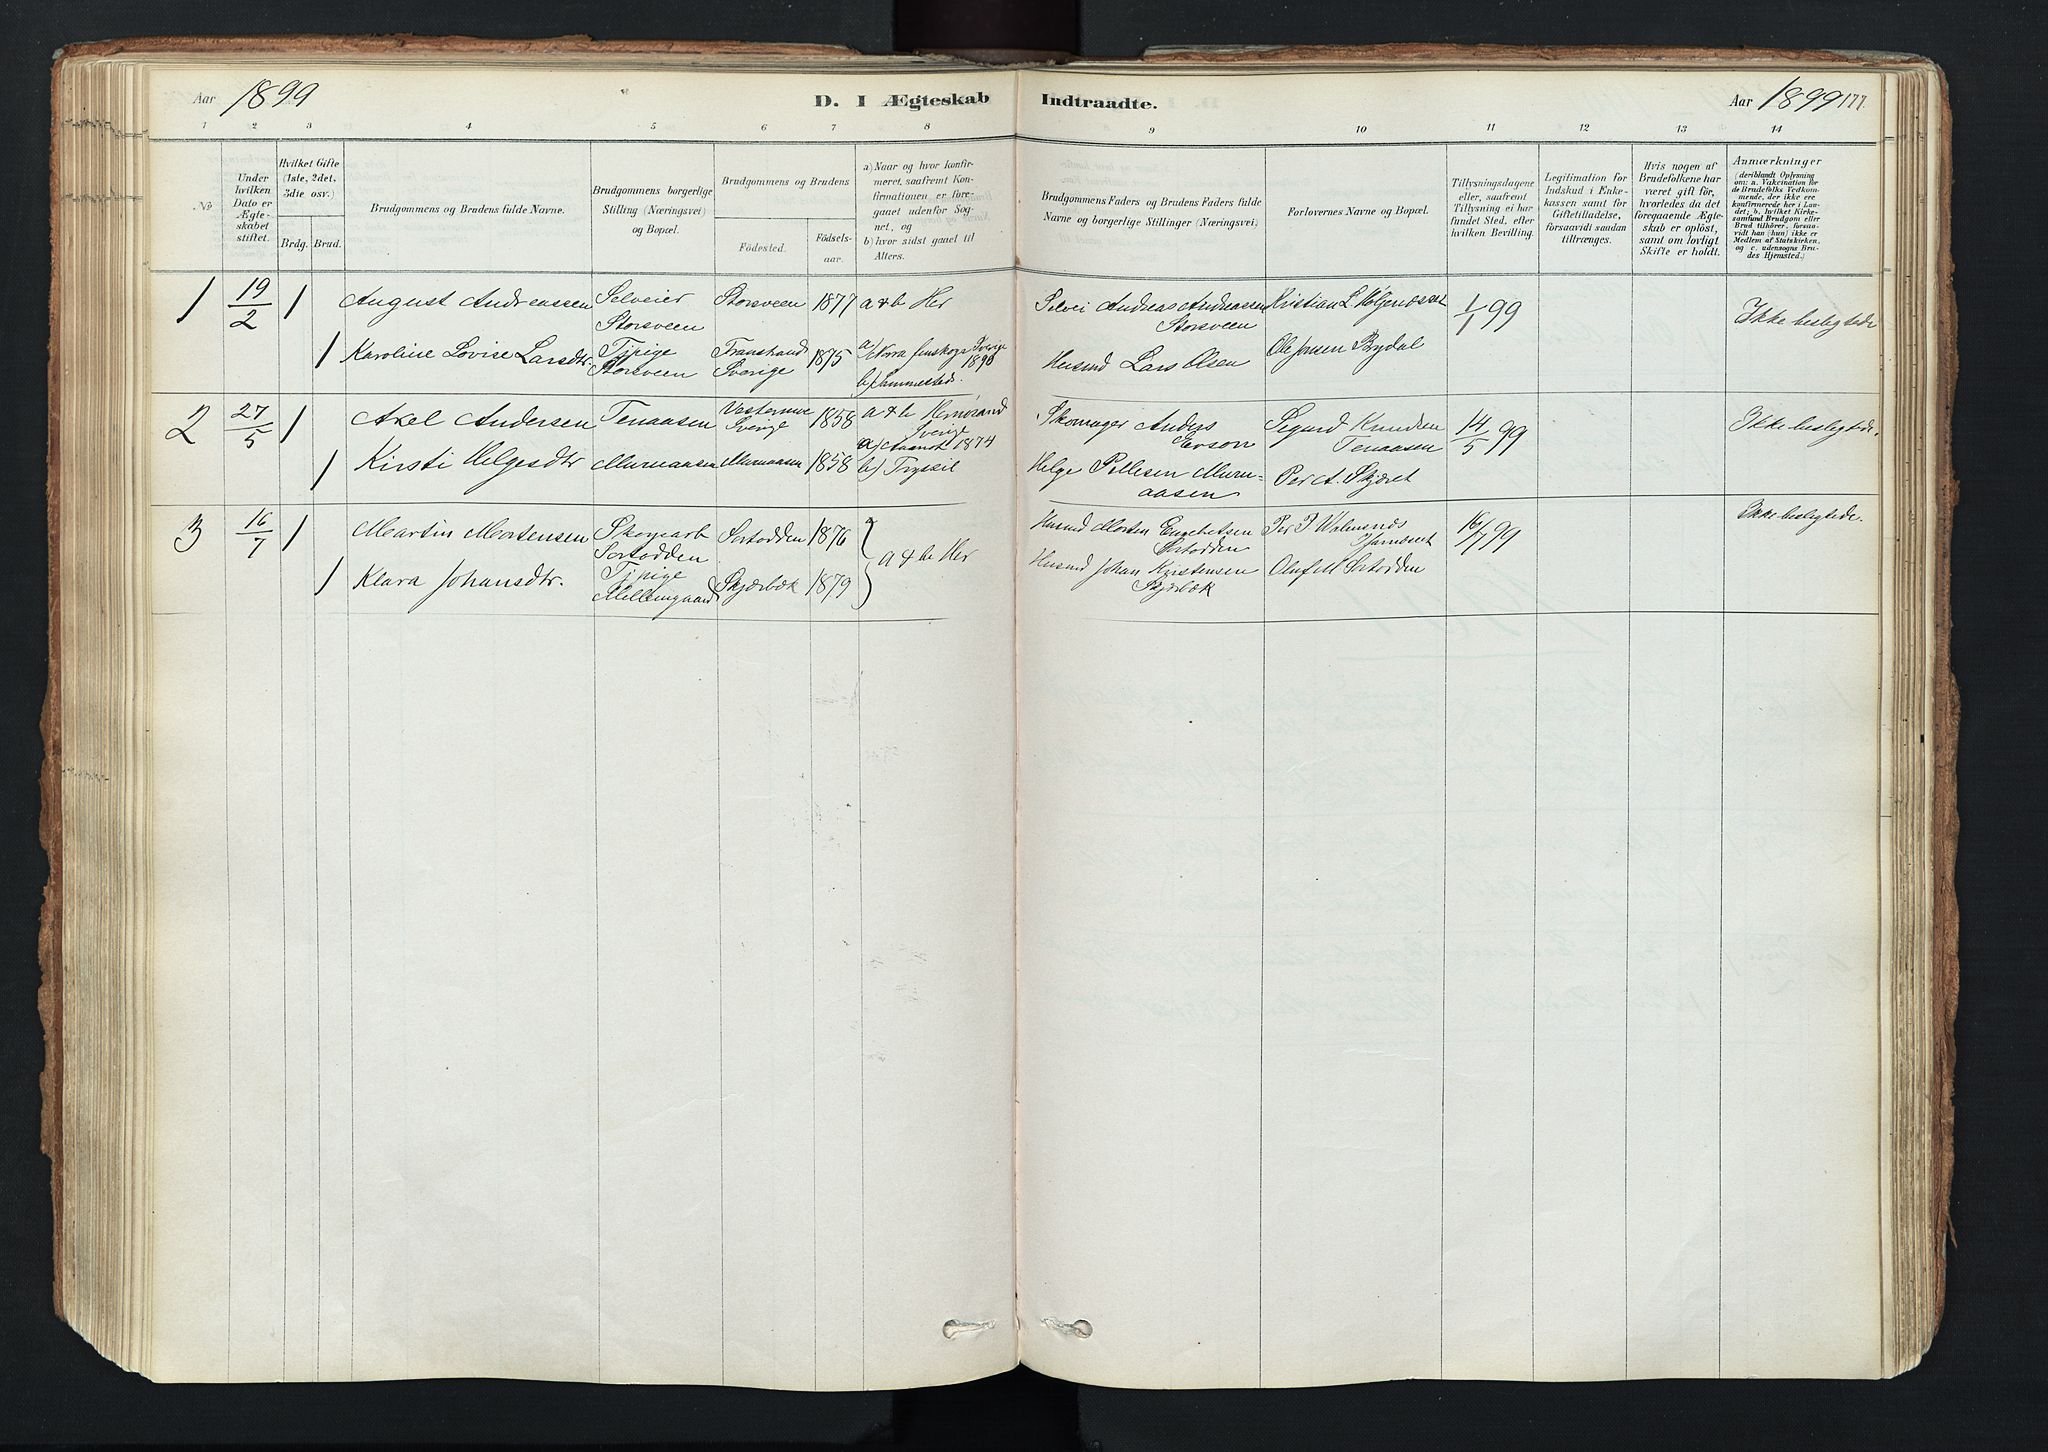 Aar 1899
D. I Ægteskab Indtraadte.
Aar 1899 177.
1 2 3 4 5 6 7 8 9 10 11 12 13 14
No
Under hvilken Dato er Ægteskabet stiftet.
Hvilket Gifte (1ste, 2det, 3die osv.)
Brdg. Brud.
Brudgommens og Brudens fulde Navne.
Brudgommens borgerlige Stilling (Næringsvei) og Bopæl.
Brudgommens og Brudens
Födested. Födselsaar.
a) Naar og hvor konfirmeret, saafremt Konfirmationen er foregaaet udenfor Sognet, og
b) hvor sidst gaaet til Alters.
Brudgommens Faders og Brudens Faders fulde Navne og borgerlige Stillinger (Næringsvei)
Forlovernes Navne og Bopæl.
Tillysningsdagene eller, saafremt Tillysning ei har fundet Sted, efter hvilken Bevilling.
Legitimation for Indskud i Enkekassen samt for Giftetilladelse, forsaavidt saadan tiltrænges.
Hvis nogen af Brudefolkene har været gift för, hvorledes da det foregaaende Ægteskab er oplöst, samt om lovligt Skifte er holdt.
Anmærkninger
(deriblandt Oplysning om: a. Vakcination for de Brudefolks Vedkommende, der ikke ere konfirmerede her i Landet; b. hvilket Kirkesamfund Brudgom eller Brud tilhörer, forsaavidt han (hun) ikke er Medlem af Statskirken, og c. udensogns Brudes Hjemsted.)
1 19/2 1 August Andreassen Selveier Storsveen Storsveen 1877 a & b Her Selvei Andreas Andreassen Storsveen Kristian L. 1/1 99 Ikke beslegtede
1 Karoline Lovise Larsdtr. Tjpige Storsveen Transtrand Sverige 1875 a/ Nora finskoga Sverige 1890 b/ Sammesteds. Husmd Lars Olsen Ole Jensen Rydal
2 27/5 1 Axel Andersen Tenaasen Sverige 1858 a & b Hernøsand Sverige Skomager Anders Erson Sigurd Knudsen Tenaasen 14/5 99 Ikke beslegtede.
1 Kirsti Helgesdtr Muruaasen Muruaasen 1858 a) 1874 b) Trysil Helge Pellesen Muruaasen Per A. Skjæret
3 16/7 1 Martin Mortensen Skogsarb Sortodden Sortodden 1876 a & b Her Husmd Morten Engebretsen Sortodden Per P. 16/7 99 Ikke beslegtede.
1 Klara Johansdtr. Tjpige Mellemgaard Skjærbæk 1879 Husmd Johan Kristensen Skjærbæk Oluf M Sortodden